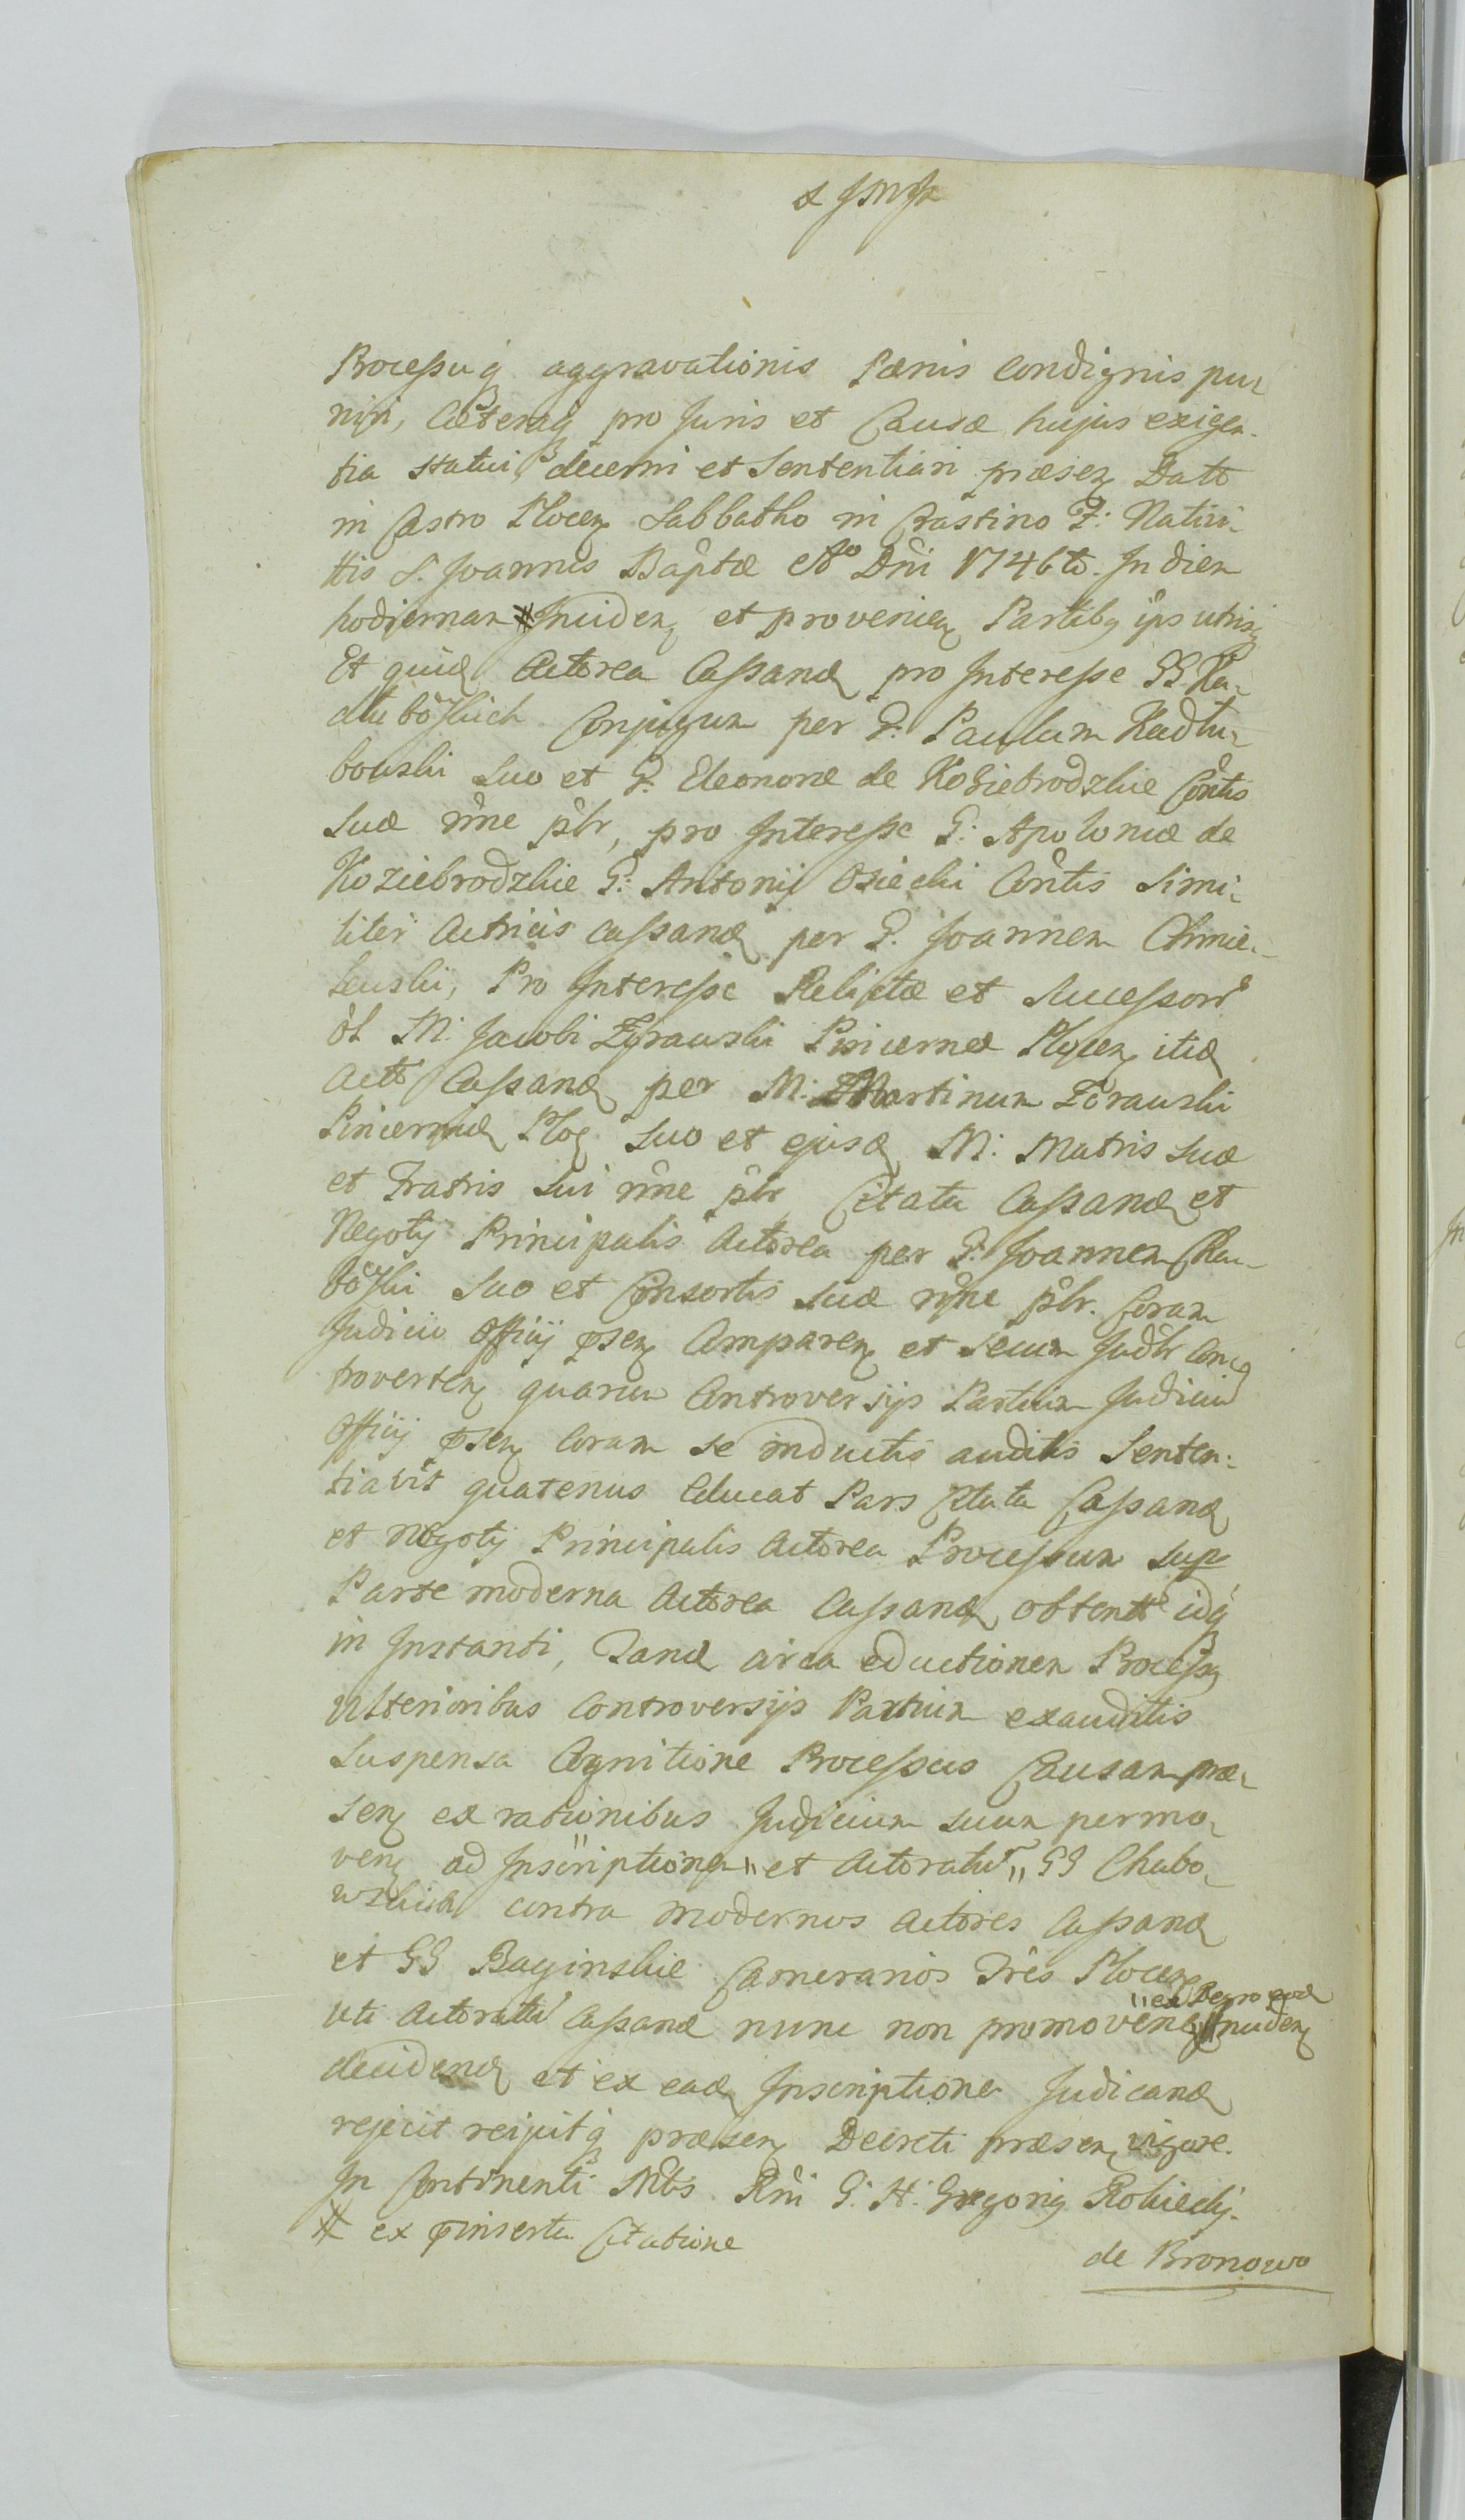 Processuq aggravationis Pænis condignis pu-
niri, Cæteraq pro Juris et Causæ hujus exigen-
tia statui, decerni et Sententiari præsen Datt
in Castro Plocen Sabbatho in Crastino F: Nativi-
ttis S. Joannis Bapttæ Ao Dni 1746to. In diem
hodiernam # Inciden et provenien Partibq ips utrisq
Et quid Actorea Cassand pro Interesse GG Ka-
dłubowskich Conjugum per G: Paulum Kadłu-
bowski suo et G: Eleonoræ de Koziebrodzkie Contis
suæ nine pbr, pro Interesse G: Apoloniæ de
Koziebrodzkie G: Antonij Osiecki Conttis simi-
liter Actricis cassand per G. Joannem Chmie-
lewski, Pro Interesse Relictæ et Successorr
ol M: Jacobi Zorawski Pincernæ Plocen itid
Actt Cassand per M: Martinum Zorawski
Pincernid Ploc suo et ejusd M: Matris suæ
et Fratris sui nine pbr Citata Cassand et
Negotij Principalis Actorea per G: Joannem Chu-
bowski suo et Consortis suæ nine pbr. Coram
Judicio Officij psen Comparen et secum Judlr Con-
troverten quarum Controversijs Partium Judicium
Officij psen coram se inductis auditis Senten-
tiavit quatenus Educat Pars Citata Cassand
et Negotij Principalis Actorea Processum sup
Parte moderna Actorea Cassand obtentt idq
in Instanti, Tand circa eductionem Processq
ulterioribus Controversijs Partium exauditis
suspensa Cognitione Processus Causam præ-
sen ex rationibus Judicium suum permo-
ven ad Inscriptionem "et Actoratu" GG Chubo-
wskich contra modernos Actores Cassand
et GG Baginskie Camerarios Tres Plocen
uti Actoratu Cassand nunc non promoven "ex Regro eod" Inciden
decidend et ex ead Inscriptione Judicand
rejecit rejicitq præsen Decreti præsen vigore.
In Continenti Mtts Rni G: H: Gregorig Rokicki
# ex pinserta Citatione
de Bronowo